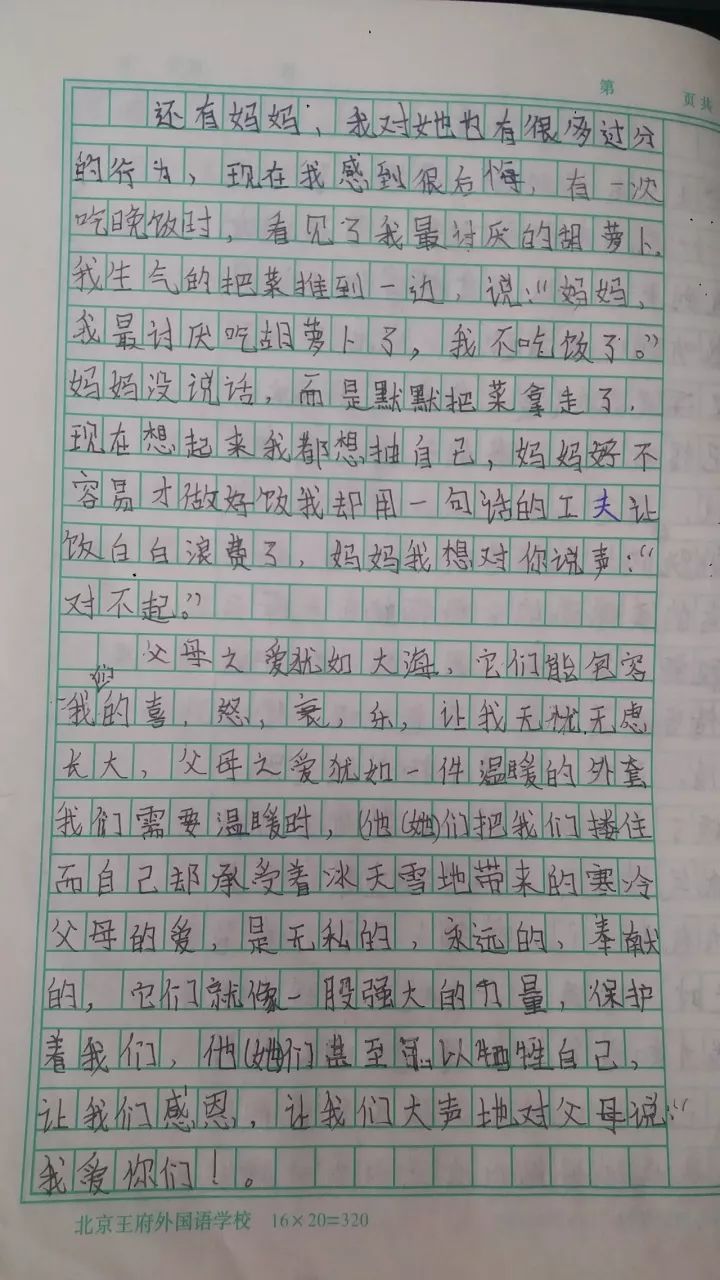 第 页 共
还有妈妈，我对她也有很多过分
的行为，现在我感到很后悔，有一次
吃晚饭时，看见了我最讨厌的胡萝卜，
我生气的把菜推到一边，说：“妈妈，
我最讨厌吃胡萝卜了，我不吃饭了。”
妈妈没说话，而是默默把菜拿走了，
现在想起来我都想抽自己，妈妈好不
容易才做好饭我却用一句话的工夫让
饭白白浪费了，妈妈我想对你说声：“
对不起。”
父母之爱犹如大海，它们能包容
我们的喜，怒，哀，乐，让我无忧无虑
长大，父母之爱犹如一件温暖的外套
我们需要温暖时，他(她)们把我们搂住
而自己却承受着冰天雪地带来的寒冷
父母的爱，是无私的，永远的，奉献
的，它们就像一股强大的力量，保护
着我们，他(她)们甚至可以牺牲自己，
让我们感恩，让我们大声地对父母说：“
我爱你们！。
北京王府外国语学校 16×20=320